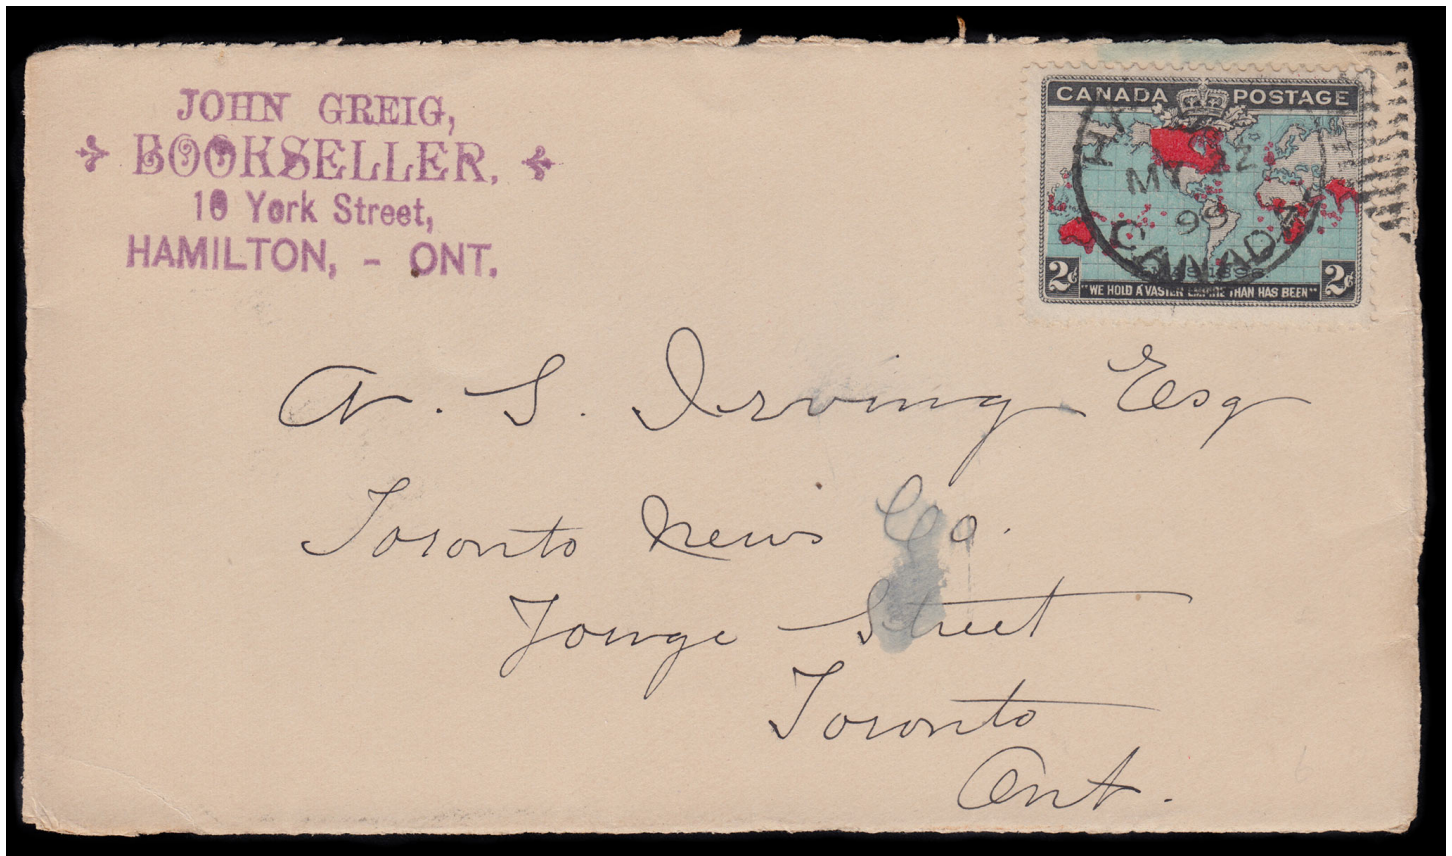 JOHN GREIG,
BOOKSELLER.
10 York Street,
HAMILTON, - ONT.
CANADA POSTAGE
MY 12
99
CANADA
2¢ 2¢
"WE HOLD A VASTER EMPIRE THAN HAS BEEN"
A. S. Irving Esq
Toronto News Co.
Yonge Street
Toronto
Ont.